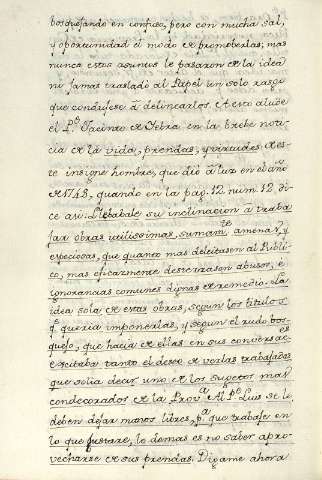 bosquejando en confuso, pero con mucha sal,
y oportunidad el modo de promoberlas; mas
nunca estos asumtos le pasaron de la idea
ni jamas trasladó al Papel un solo rasgo
que condujese à delinearlos. A esto alude
el P.e Jacinto de Tebra en la brebe noti-
cia de la vida, prendas, y virtudes de es-
te insigne hombre, que diò à luz en el año
de 1743, quando en la pag. 12 num. 12 di-
ce asi: Llebabale su inclinacion à traba
jar obras utilissimas, sumam.te amenas, y
especiosas, que quanto mas deleitasen al Publi-
co, mas eficazmente desterrasen abusos, è
ignorancias comunes dignas de remedio. La
idea sola de estas obras, segun los titulos
q.e queria imponerlas, y segun el rudo bos-
quejo, que hacia de ellas en sus conversac.es
excitaba tanto el deseo de verlas trabajadas
que solia decir uno de los sugetos mas
condecorados de la Prov.a Al P.e Luis se le
deben dejar manos libres, p.a que trabaje en
lo que gustare, lo demas es no saber apro-
vecharse de sus prendas. Digame ahora